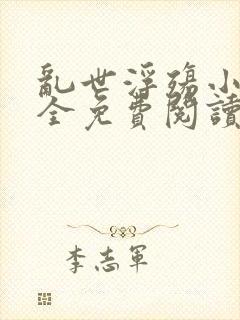 亂世浮殤小
全免費閱讀
李志軍